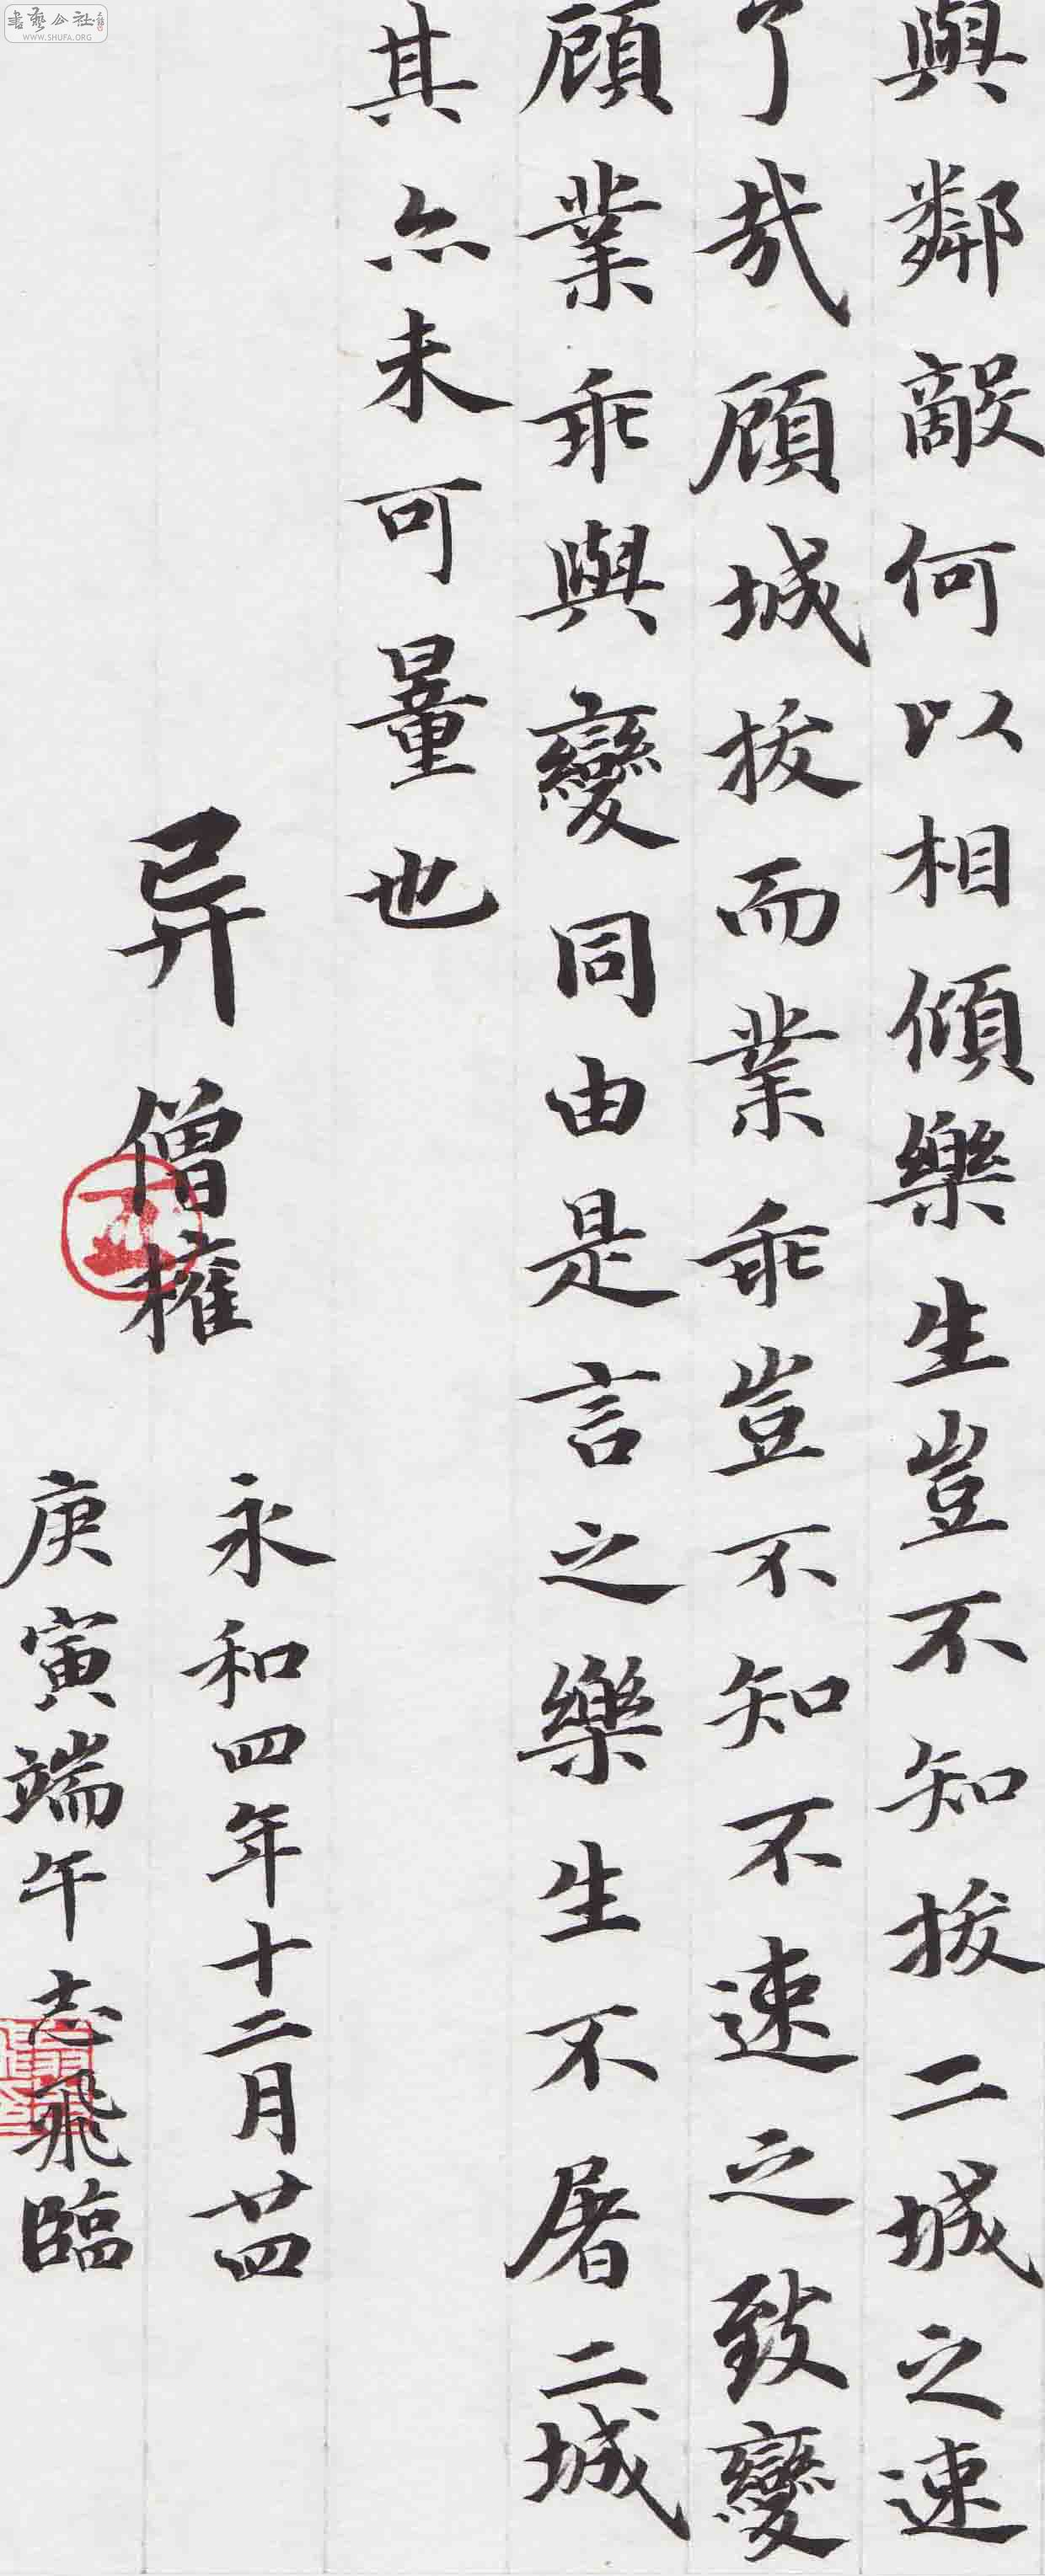 與鄰敵何以相傾樂生豈不知拔二城之速
了哉顧城拔而業乖豈不知不速之致變
顧業乖與變同由是言之樂生不屠二城
其亦未可量也
异僧權
永和四年十二月廿四
庚寅端午志飛臨
書藝公社
WWW.SHUFA.ORG